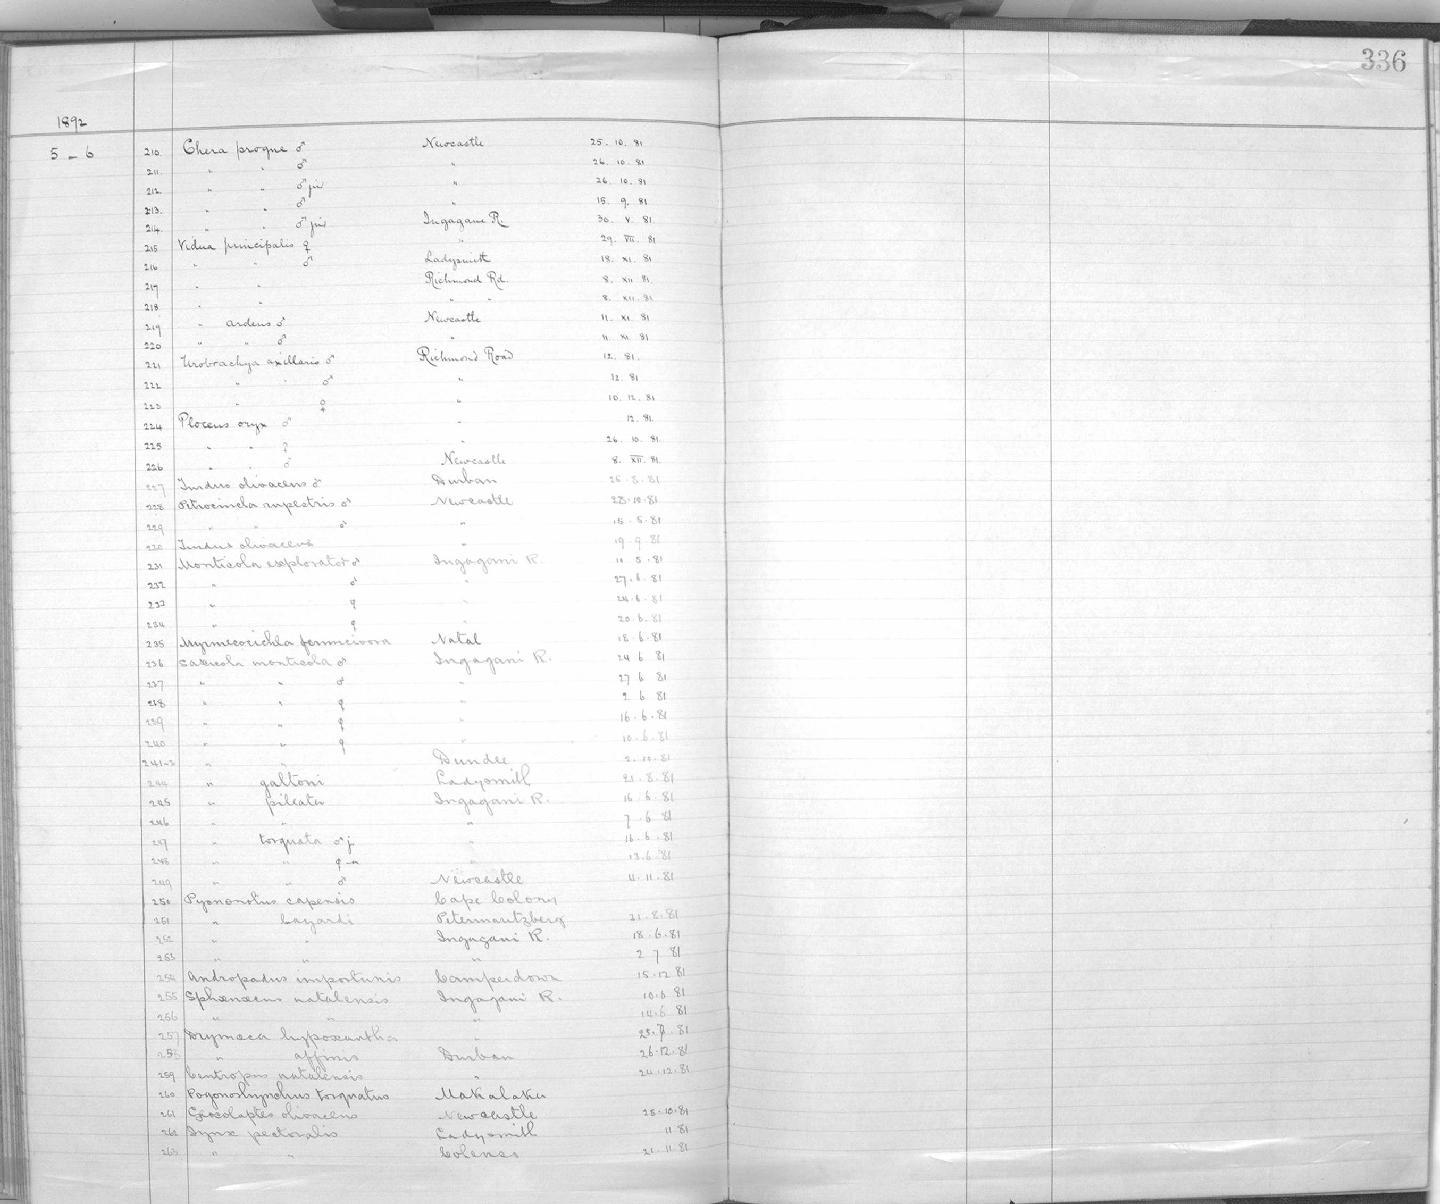 336
1892
5 - 6 210. Chera progne ♂ Newcastle 25. 10. 81
211 " " ♂ " 26. 10. 81
212. " " ♂ juv " 26. 10. 81
213. " " ♂ " 15. 9. 81
214. " " ♂ juv Ingagane R. 30. V. 81.
215 Vidua principalis ♀ " 29. VII. 81
216 " " ♂ Ladysmith 18. XI. 81
217 " " Richmond Rd. 8. XII 81.
218 " " " " 8. XII. 81
219 " ardens ♂ Newcastle 11. XI. 81
220 " " ♂ " 11. XI. 81
221 Urobrachya axillaris ♂ Richmond Road 12. 81.
222 " " ♂ " 12. 81
223 " ♀ " 10. 12. 81
224 Ploceus oryx ♂ " 12. 81.
225 " " ♀ " 26. 10. 81.
226 " " ♂ Newcastle 8. XII. 81.
227 Turdus olivaceus ♂ Durban 25. 8. 81
228 Petrocincla rupestris ♂ Newcastle 28. 10. 81
229 " " ♂ " 15. 5. 81
230 Turdus olivaceus " 19. 9. 81
231 Monticola explorator ♂ Ingagani R. 11 5. 81
232 " ♂ " 27. 6. 81
233 " ♀ " 24. 6. 81
234 " ♀ 20. 6. 81
235 Myrmecocichla formicivora Natal 18. 6. 81
236 Saxicola monticola ♂ Ingagani R. 24 6 81
237 " " ♂ " 27 6 81
238 " " ♀ " 2 6 81
239 " " ♀ " 16. 6. 81
240 " " ♀ " 10. 6. 81
241-3 " " Dundee 2. 10. 81
244 " galtoni Ladysmith 21. 8. 81
245 " pileata Ingagani R. 16 6 81
246 " " " 7 6 81
247 " torquata ♂ j " 16. 6. 81
248 " " ♀ " 13. 6. 81
249 " " ♂ Newcastle 11. 11. 81
250 Pycnonotus capensis Cape Colony
251 " Layardi Petermaritzberg 21. 8. 81
252 " " Ingagani R. 18. 6. 81
253 " " " 2 7 81
254 Andropadus importunis Camperdown 15. 12 81
255 Sphenæus natalensis Ingagani R. 10. 6 81
256 " " " 14. 6 81
257 Drymæca hypoxantha " 23. 7. 81
258 " affinis Durban 26. 12. 81
259 Centropus natalensis " 24. 12. 81
260 Pogonorhynchus torquatus Makalaka
261 Geocolaptes olivaceus Newcastle 25. 10. 81
262 Iynx pectoralis Ladysmith 11 81
263 " " Colenso 21. 11 81